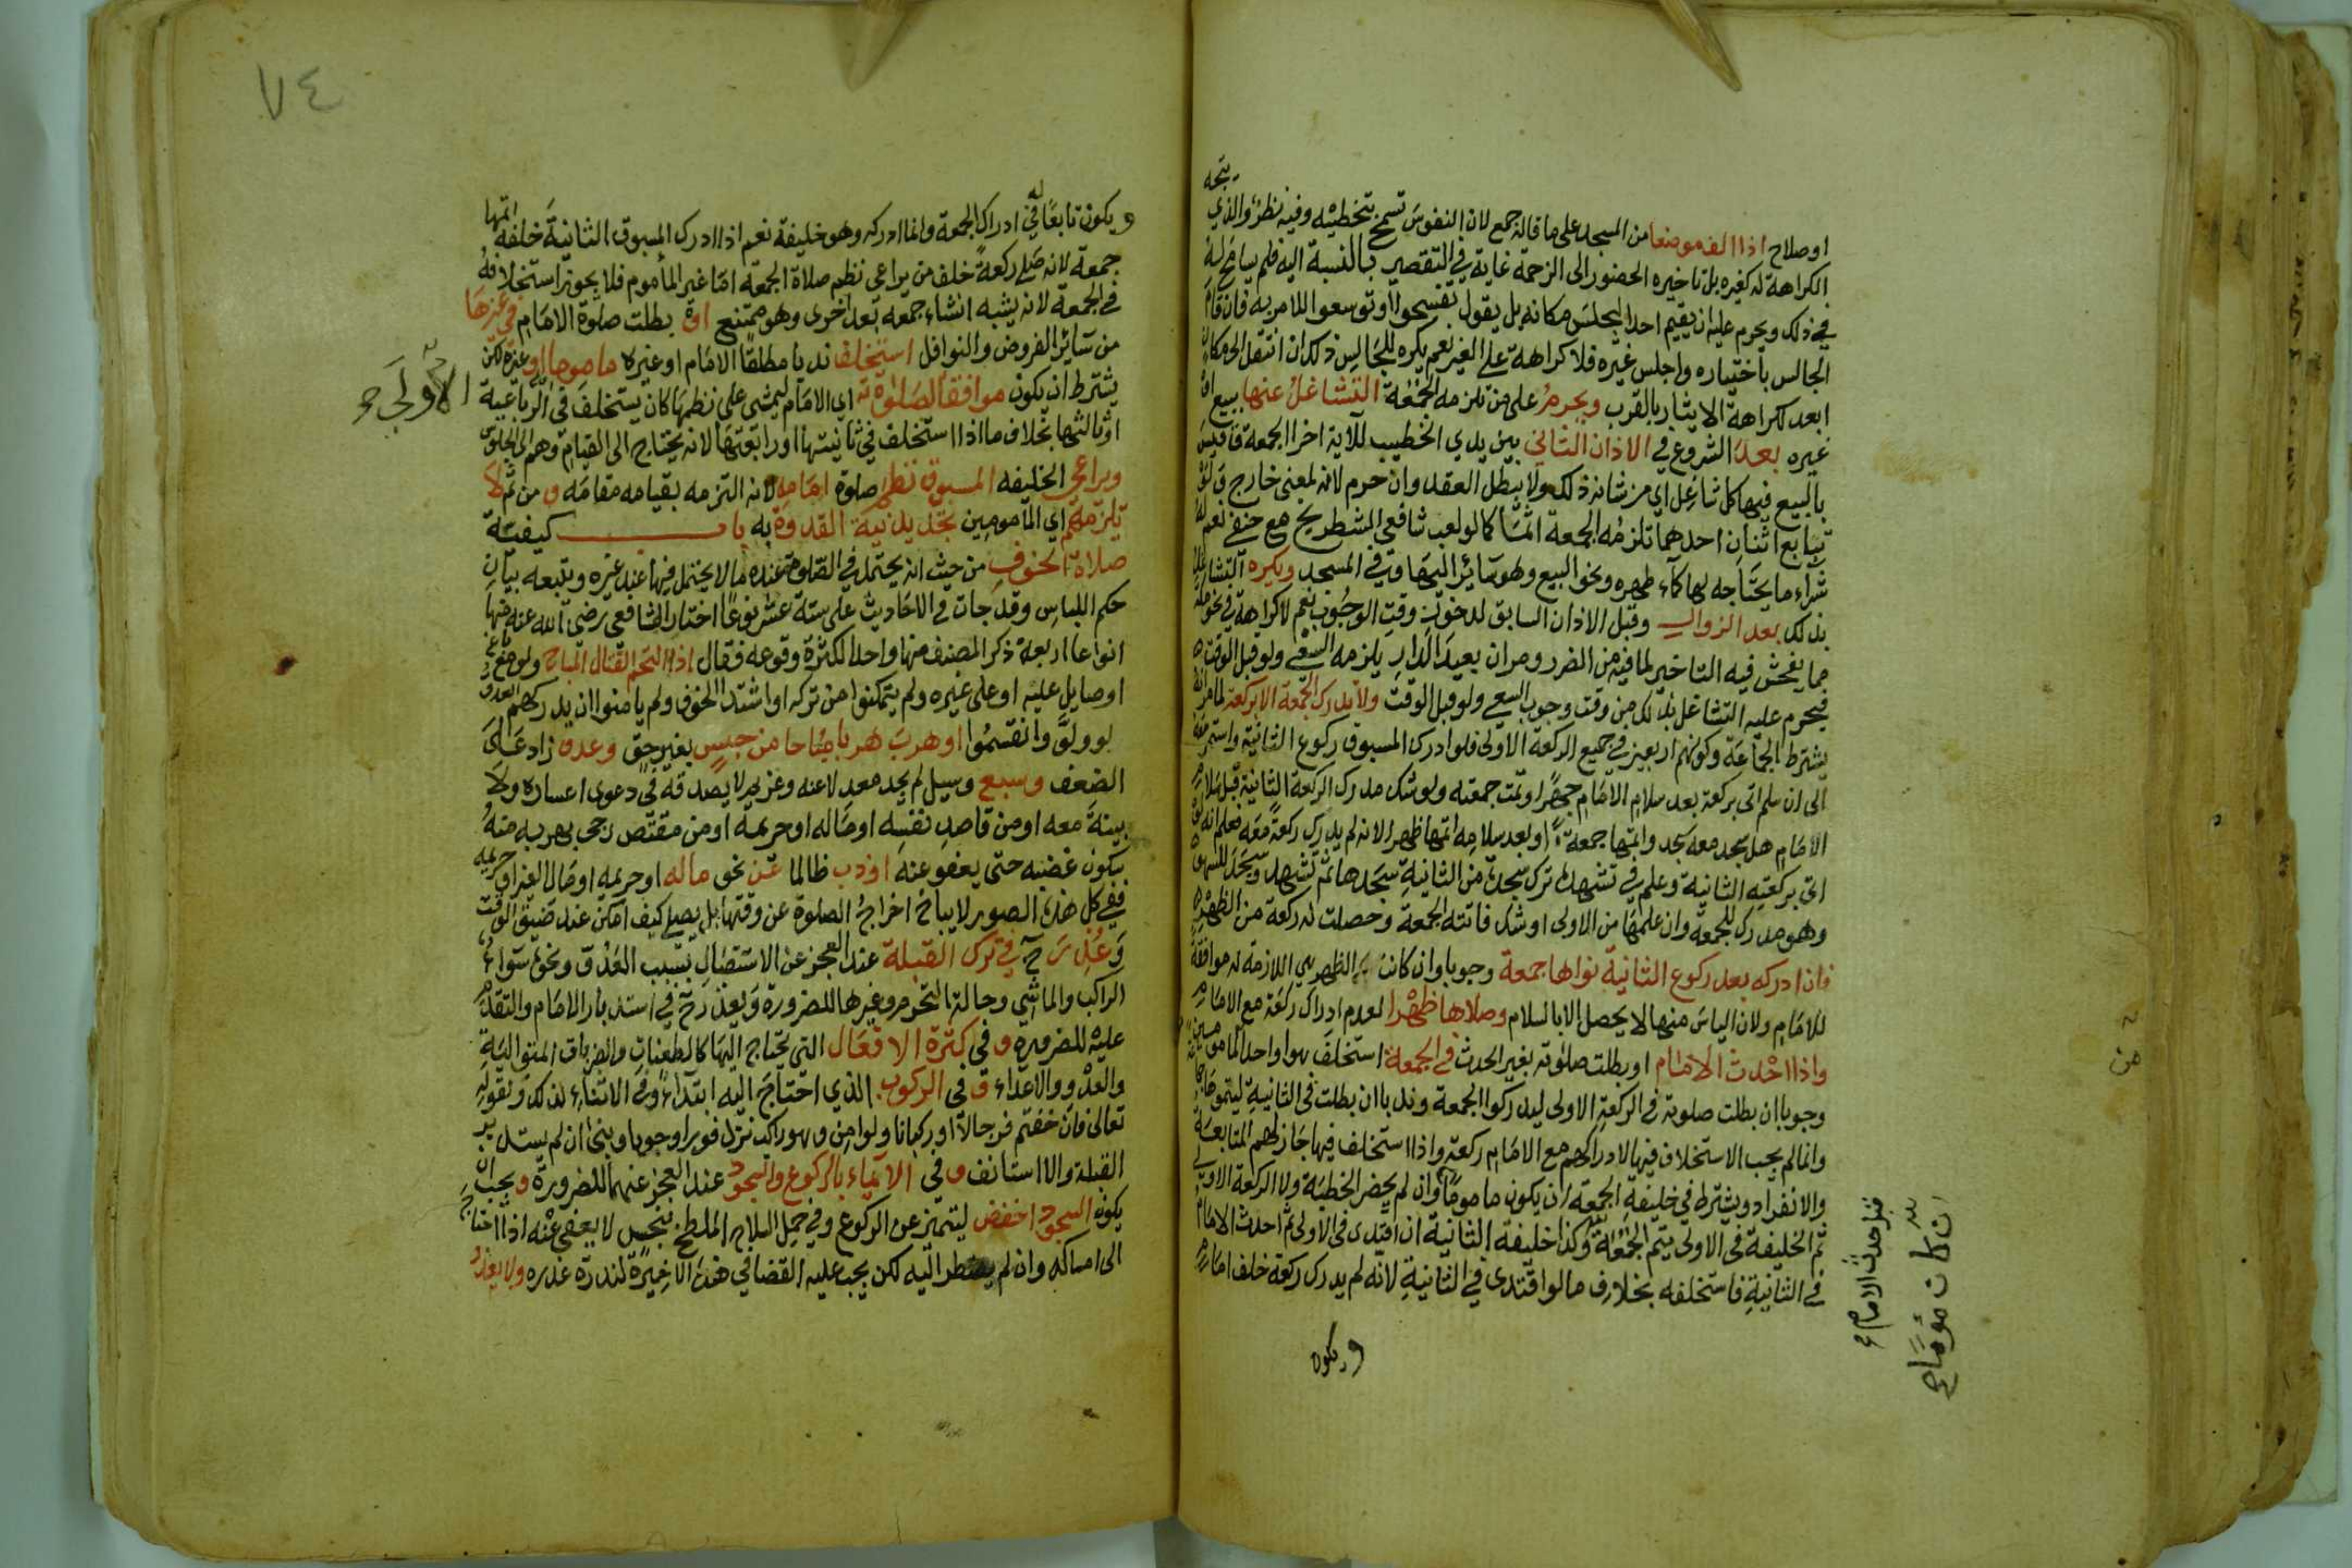 يتجه
او صلاح اذا الف موضعا من المسجد على ما قاله جمع لان النفوس تسمح بتخطيه وفيه نظر والذي
الكراهة له كغيره بل تاخيره الحضور الى الزحمة غاية في التقصير بالنسبة اليه فلم يسامح له
في ذلك ويحرم عليه ان يقيم احدا ليجلس مكانه بل يقول تفسحوا او توسعوا للامر به فان قام
الجالس باختياره واجلس غيره فلا كراهة على الغير نعم يكره للجالس ذلك ان انتقل الى مكان
ابعد لكراهة الايثار بالقرب ويحرم على من تلزمه الجمعة التشاغل عنها ببيع او
غيره بعد الشروع في الاذان الثاني بين يدي الخطيب للآية اخر الجمعة فاقيس
بالبيع فيها كل شاغل اي من شانه ذلك ولا يبطل العقد وان حرم لانه لمعنى خارج ولو
تبايع اثنان احدهما تلزمه الجمعة اثما كما لو لعب شافعي الشطرنج مع حنفي نعم له
شراء ما يحتاجه لها كماء طهره ونحو البيع وهو سائر اليها وفي المسجد ويكره التشاغل
بذلك بعد الزوال وقبل الاذان السابق لدخول وقت الوجوب نعم لا كراهة في نحو مكة
مما يفحش فيه التاخير لما فيه من الضرر ومر ان بعيد الدار يلزمه السعي ولو قبل الوقت
فيحرم عليه التشاغل بذلك من وقت وجوب السعي ولو قبل الوقت ولا تدرك الجمعة الا بركعة لما مر انه
يشترط الجماعة وكونهم اربعين في جميع الركعة الاولى فلو ادرك المسبوق ركوع الثانية واستمر معه
الى ان سلم اتى بركعة بعد سلام الامام جهرا وتمت جمعته ولو شك مدرك الركعة الثانية قبل سلام
الامام هل سجد معه سجد واتمها جمعة او بعد سلامه اتمها ظهرا لانه لم يدرك ركعة معه فعلم انه لو
اتى بركعته الثانية وعلم في تشهده ترك سجدة من الثانية سجدها ثم تشهد وسجد للسهو
وهو مدرك للجمعة وان علمها من الاولى او شك فاتته الجمعة وحصلت له ركعة من الظهر
فان ادركه بعد ركوع الثانية نواها جمعة وجوبا وان كانت الظهر هي اللازمة له موافقة
للامام ولان الياس منها لا يحصل الا بالسلام وصلاها ظهرا لعدم ادراك ركعة مع الامام
واذا احدث الامام او بطلت صلوته بغير الحدث في الجمعة استخلف هو او احد المامومين
وجوبا ان بطلت صلوته في الركعة الاولى ليدركوا الجمعة وندبا ان بطلت في الثانية ليتموها جماعة
وانما لم يجب الاستخلاف فيها لادراكهم مع الامام ركعة واذا استخلف فيها جاز لهم المتابعة
والانفراد ويشترط في خليفة الجمعة ان يكون ماموما وان لم يحضر الخطبة ولا الركعة الاولى
ثم الخليفة في الاولى يتم الجمعة وكذا خليفة الثانية ان اقتدى في الاولى ثم احدث الامام
في الثانية فاستخلفه بخلاف ما لو اقتدى في الثانية لانه لم يدرك ركعة خلف امام
ويكون
قبل حدث الامام
ان كان مؤماح
من
٧٤
ويكون تابعا له في ادراك الجمعة وانما ادركه وهو خليفة نعم اذا ادرك المسبوق الثانية خلفه اتمها
جمعة لانه صلى ركعة خلف من يراعي نظم صلاة الجمعة اما غير المأموم فلا يجوز استخلافه
في الجمعة لانه يشبه انشاء جمعه بعد اخرى وهو ممتنع او بطلت صلوة الامام في غيرها
من سائر الفروض والنوافل استخلف ندبا مطلقا الامام او غيره ماموما او غيره لكن
يشترط ان يكون موافقا لصلوته اي الامام ليمشي على نظمها كان يستخلف في الرباعية
الاولى
او ثالثتها بخلاف ما اذا استخلف في ثانيتها او رابعتها لانه يحتاج الى القيام وهم الى الجلوس
ويراعى الخليفه المسبوق نظم صلوة امامه لانه التزمه بقيامه مقامه ومن ثم لا
تلزمهم اي المامومين تجديد نية القدوة به باب كيفية
صلاة الخوف من حيث انه يحتمل في الصلوة عنده ما لا يحتمل فيها عند غيره ويتبعه بيان
حكم اللباس وقد جات في الاحاديث على ستة عشر نوعا اختار الشافعي رضي الله عنه منها
انواعا اربعة ذكر المصنف منها واحدا لكثرة وقوعه فقال اذا التحم القتال المباح ولو مع باغ
او صايل عليه او على غيره ولم يتمكنوا من تركه او اشتد الخوف ولم يامنوا ان يدركهم العدو
لو ولوا وانقسموا او هرب هربا مباحا من حبس بغير حق وعدو زاد على
الضعف وسبع وسيل لم يجد معدلا عنه وغريم لا يصدقه في دعوى اعساره ولا
بينة معه او من قاصد نفسه او ماله او حريمه او من مقتص رجى بهربه منه
سكون غضبه حتى يعفو عنه او ذب ظالما عن نحو ماله او حريمه او مال الغير او حريمه
ففي كل هذه الصور لا يباح اخراج الصلوة عن وقتها بل يصلي كيف امكن عند ضيق الوقت
وعذر ح في ترك القبلة عند العجز عن الاستقبال بسبب العدو ونحوه سواء
الراكب والماشي وحالة التحرم وغيرها للضرورة ويعذر ح في استدبار الامام والتقدم
عليه للضرورة وفي كثرة الافعال التي يحتاج اليها كالطعنات والضربات المتوالية
والعدو والاعداء وفي الركوب الذي احتاج اليه ابتداء وفي الاثناء لذلك ولقوله
تعالى فان خفتم فرجالا او ركبانا ولو امن وهو راكب نزل فورا وجوبا وبنى ان لم يستدبر
القبلة والا استانف وفي الايماء بالركوع والسجود عند العجز عنهما للضرورة ويجب ان
يكون السجود اخفض ليتميز عن الركوع وفي حمل السلاح الملطخ بنجس لا يعفى عنه اذا احتاج
الى امساكه وان لم يضطر اليه لكن يجب عليه القضا في هذه الاخيرة لندرة عذره ولا يعذر